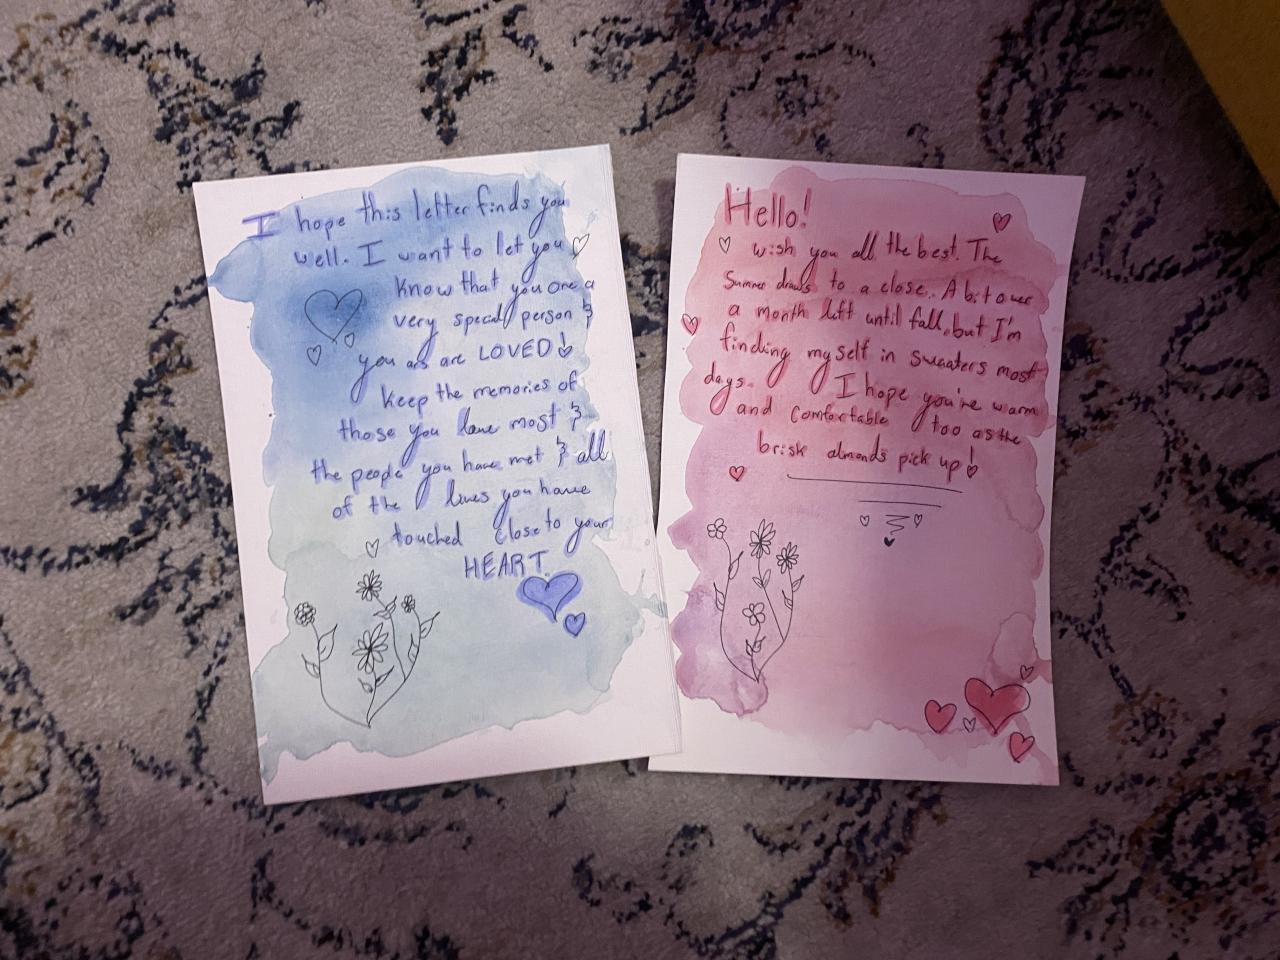 I hope this letter finds you
well. I want to let you
know that you are a
very special person &
you are are LOVED!
keep the memories of
those you love most &
the people you have met & all
of the lives you have
touched close to your
HEART.
Hello!
wish you all the best. The
Summer draws to a close. A bit over
a month left until fall, but I'm
finding myself in sweaters most
days. I hope you're warm
and comfortable too as the
brisk almonds pick up!